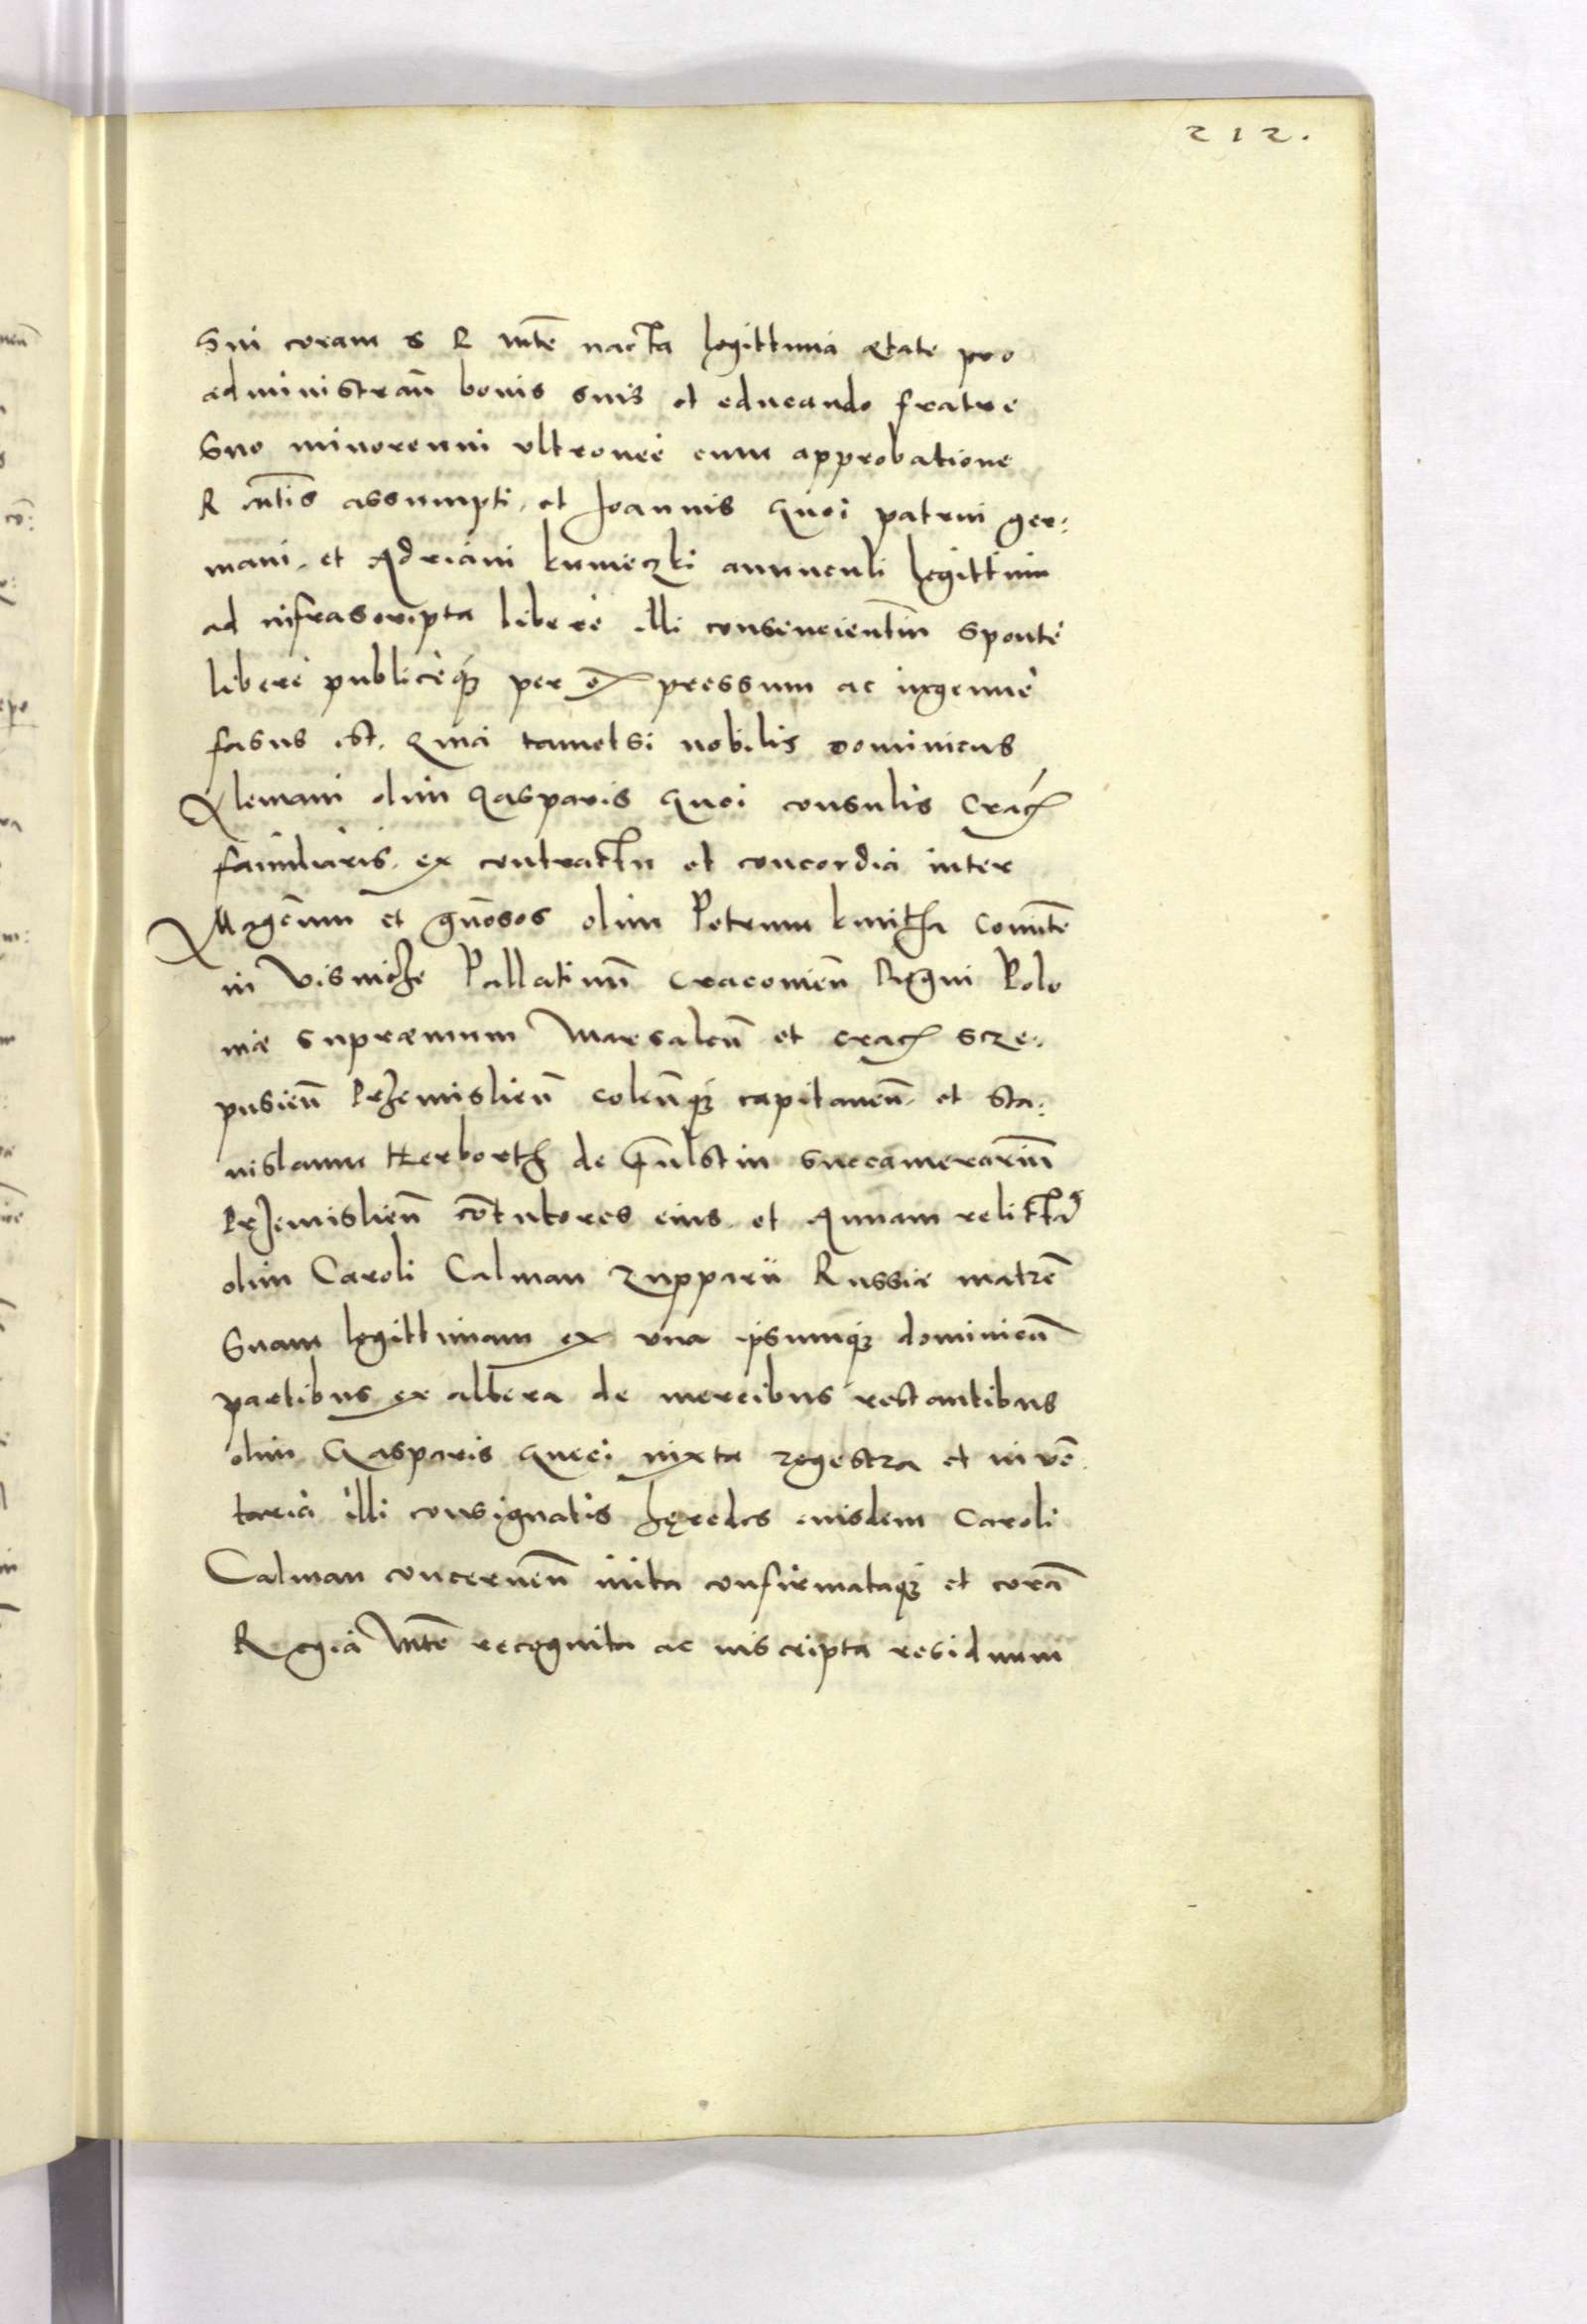 212.
Sui coram S R Mte nacta legittima ætate pro
administrañ bonis suis et educando fratre
Suo minorenni ultronee cum approbatione
R Mtis assumpti, et Joannis Guci patrui ger:
mani, et Adriani avunculi legittimi
ad infrascripta libere illi consencientiũ sponte
libere publiceq́ per expressum ac ingenue
fasus est, Quia tametsi nobilis Dominicus
Alemani olim Gasparis Guci consulis Crac̃
familiaris ex contractu et concordia inter
Magcum et gñosos olim Petrum Kmitha Comitẽ
in Visnicze Pallatinũ Cracovieñ Regni Polo
niæ Supræmum Marsalcũ et Crac̃ Scze:
pusieñ Przemislieñ Coleñq́ capitaneũ, et Sta:
nislaum Herborth de Fulstin Succamerariũ
Przemislieñ cõtutores eius, et Annam relictã
olim Caroli Calman zupparii Russiæ matrẽ
Suam legittimam ex una ipsumq́ dominicũ
partibus ex altera de mercibus restantibus
olim Gasparis Gucci iuxta regestra et invẽ
taria illi consignatis hęredes eiusdem Caroli
Calman concerneñ inita confirmataq́ et corã
Regia Mte recognita ac inscripta residuum